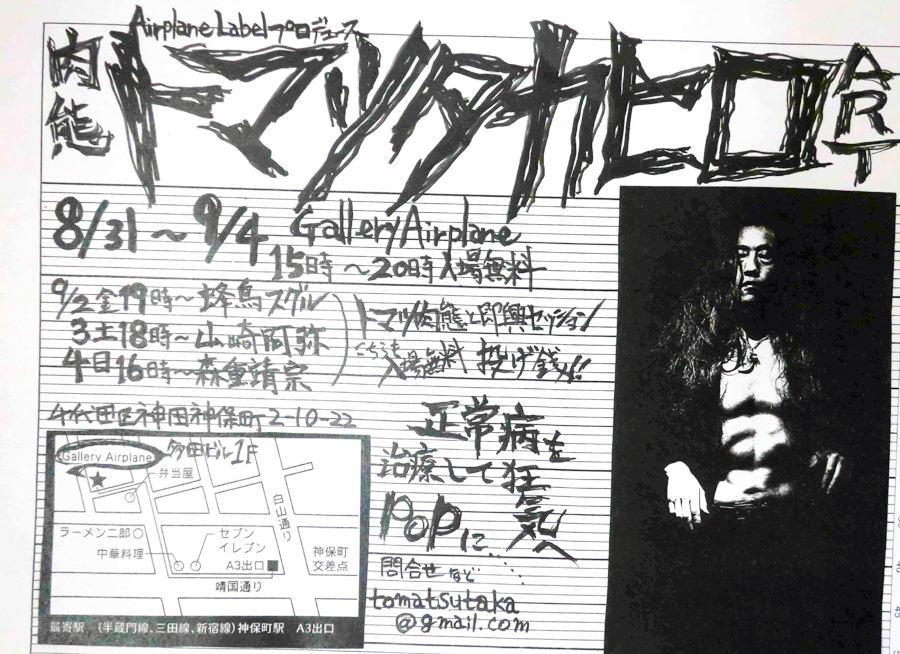 Airplane Labelプロデュース
肉態
トマツタカヒロ
ART
8/31～9/4 Gallery Airplane
15時～20時 入場無料
9/2金19時～蜂鳥スグル
3土18時～山崎阿弥
4日16時～森重靖宗
トマツ肉態と即興セッション
こちらも入場無料 投げ銭〆!!
千代田区神田神保町2-10-22
多田ビル1F
Gallery Airplane
弁当屋
ラーメン二郎
中華料理
セブン
イレブン
A3出口
白山通り
神保町
交差点
靖国通り
最寄駅 (半蔵門線、三田線、新宿線)神保町駅 A3出口
正常病を
治療して狂気へ
POPに…
問合せなど
tomatsutaka
@gmail.com